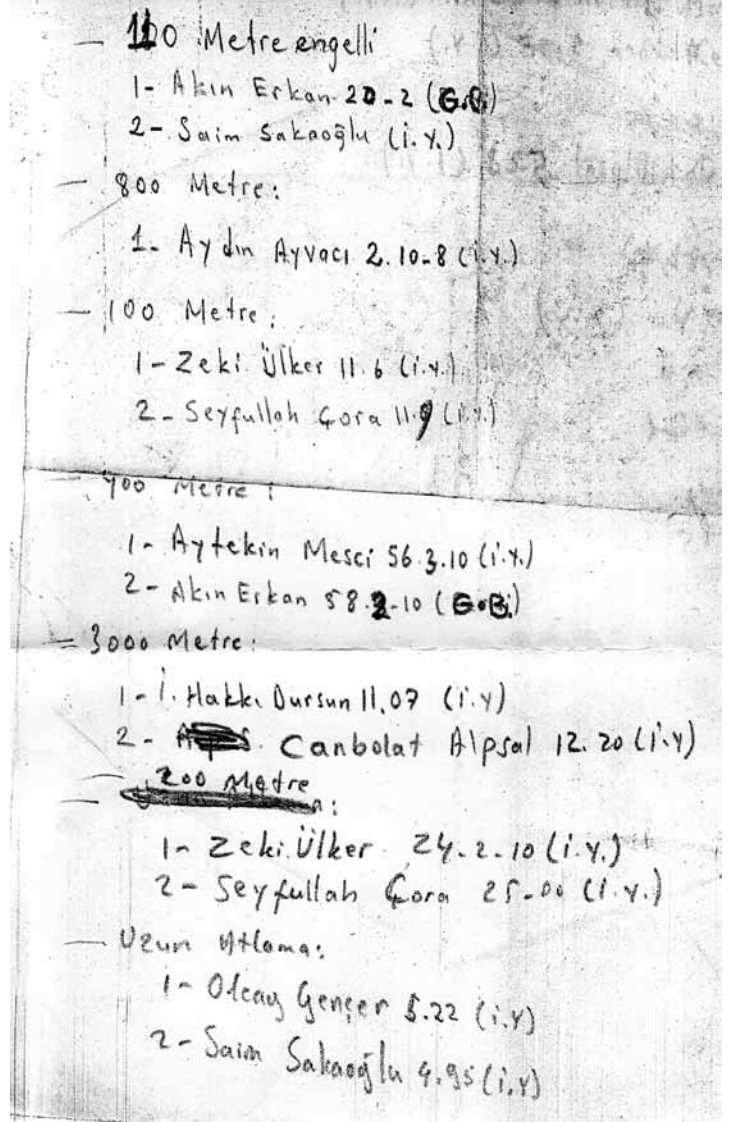 — 110 Metre engelli
1- Akın Erkan 20-2 (G.B.)
2- Saim Sakaoğlu (i.Y.)
— 800 Metre:
1- Aydın Ayvacı 2.10-8 (i.Y.)
— 100 Metre:
1- Zeki Ülker 11.6 (i.Y.)
2- Seyfullah Çora 11.9 (i.Y.)
— 400 Metre:
1- Aytekin Mesci 56.3.10 (i.Y.)
2- Akın Erkan 58.2-10 (G.B.)
— 3000 Metre:
1- İ. Hakkı Dursun 11.07 (i.Y)
2- Canbolat Alpsal 12.20 (i.Y)
— 200 Metre
1- Zeki Ülker 24-2-10 (i.Y.)
2- Seyfullah Çora 25-00 (i.Y.)
— Uzun Atlama:
1- Olcay Gençer 5.22 (i.Y)
2- Saim Sakaoğlu 4.95 (i.Y)